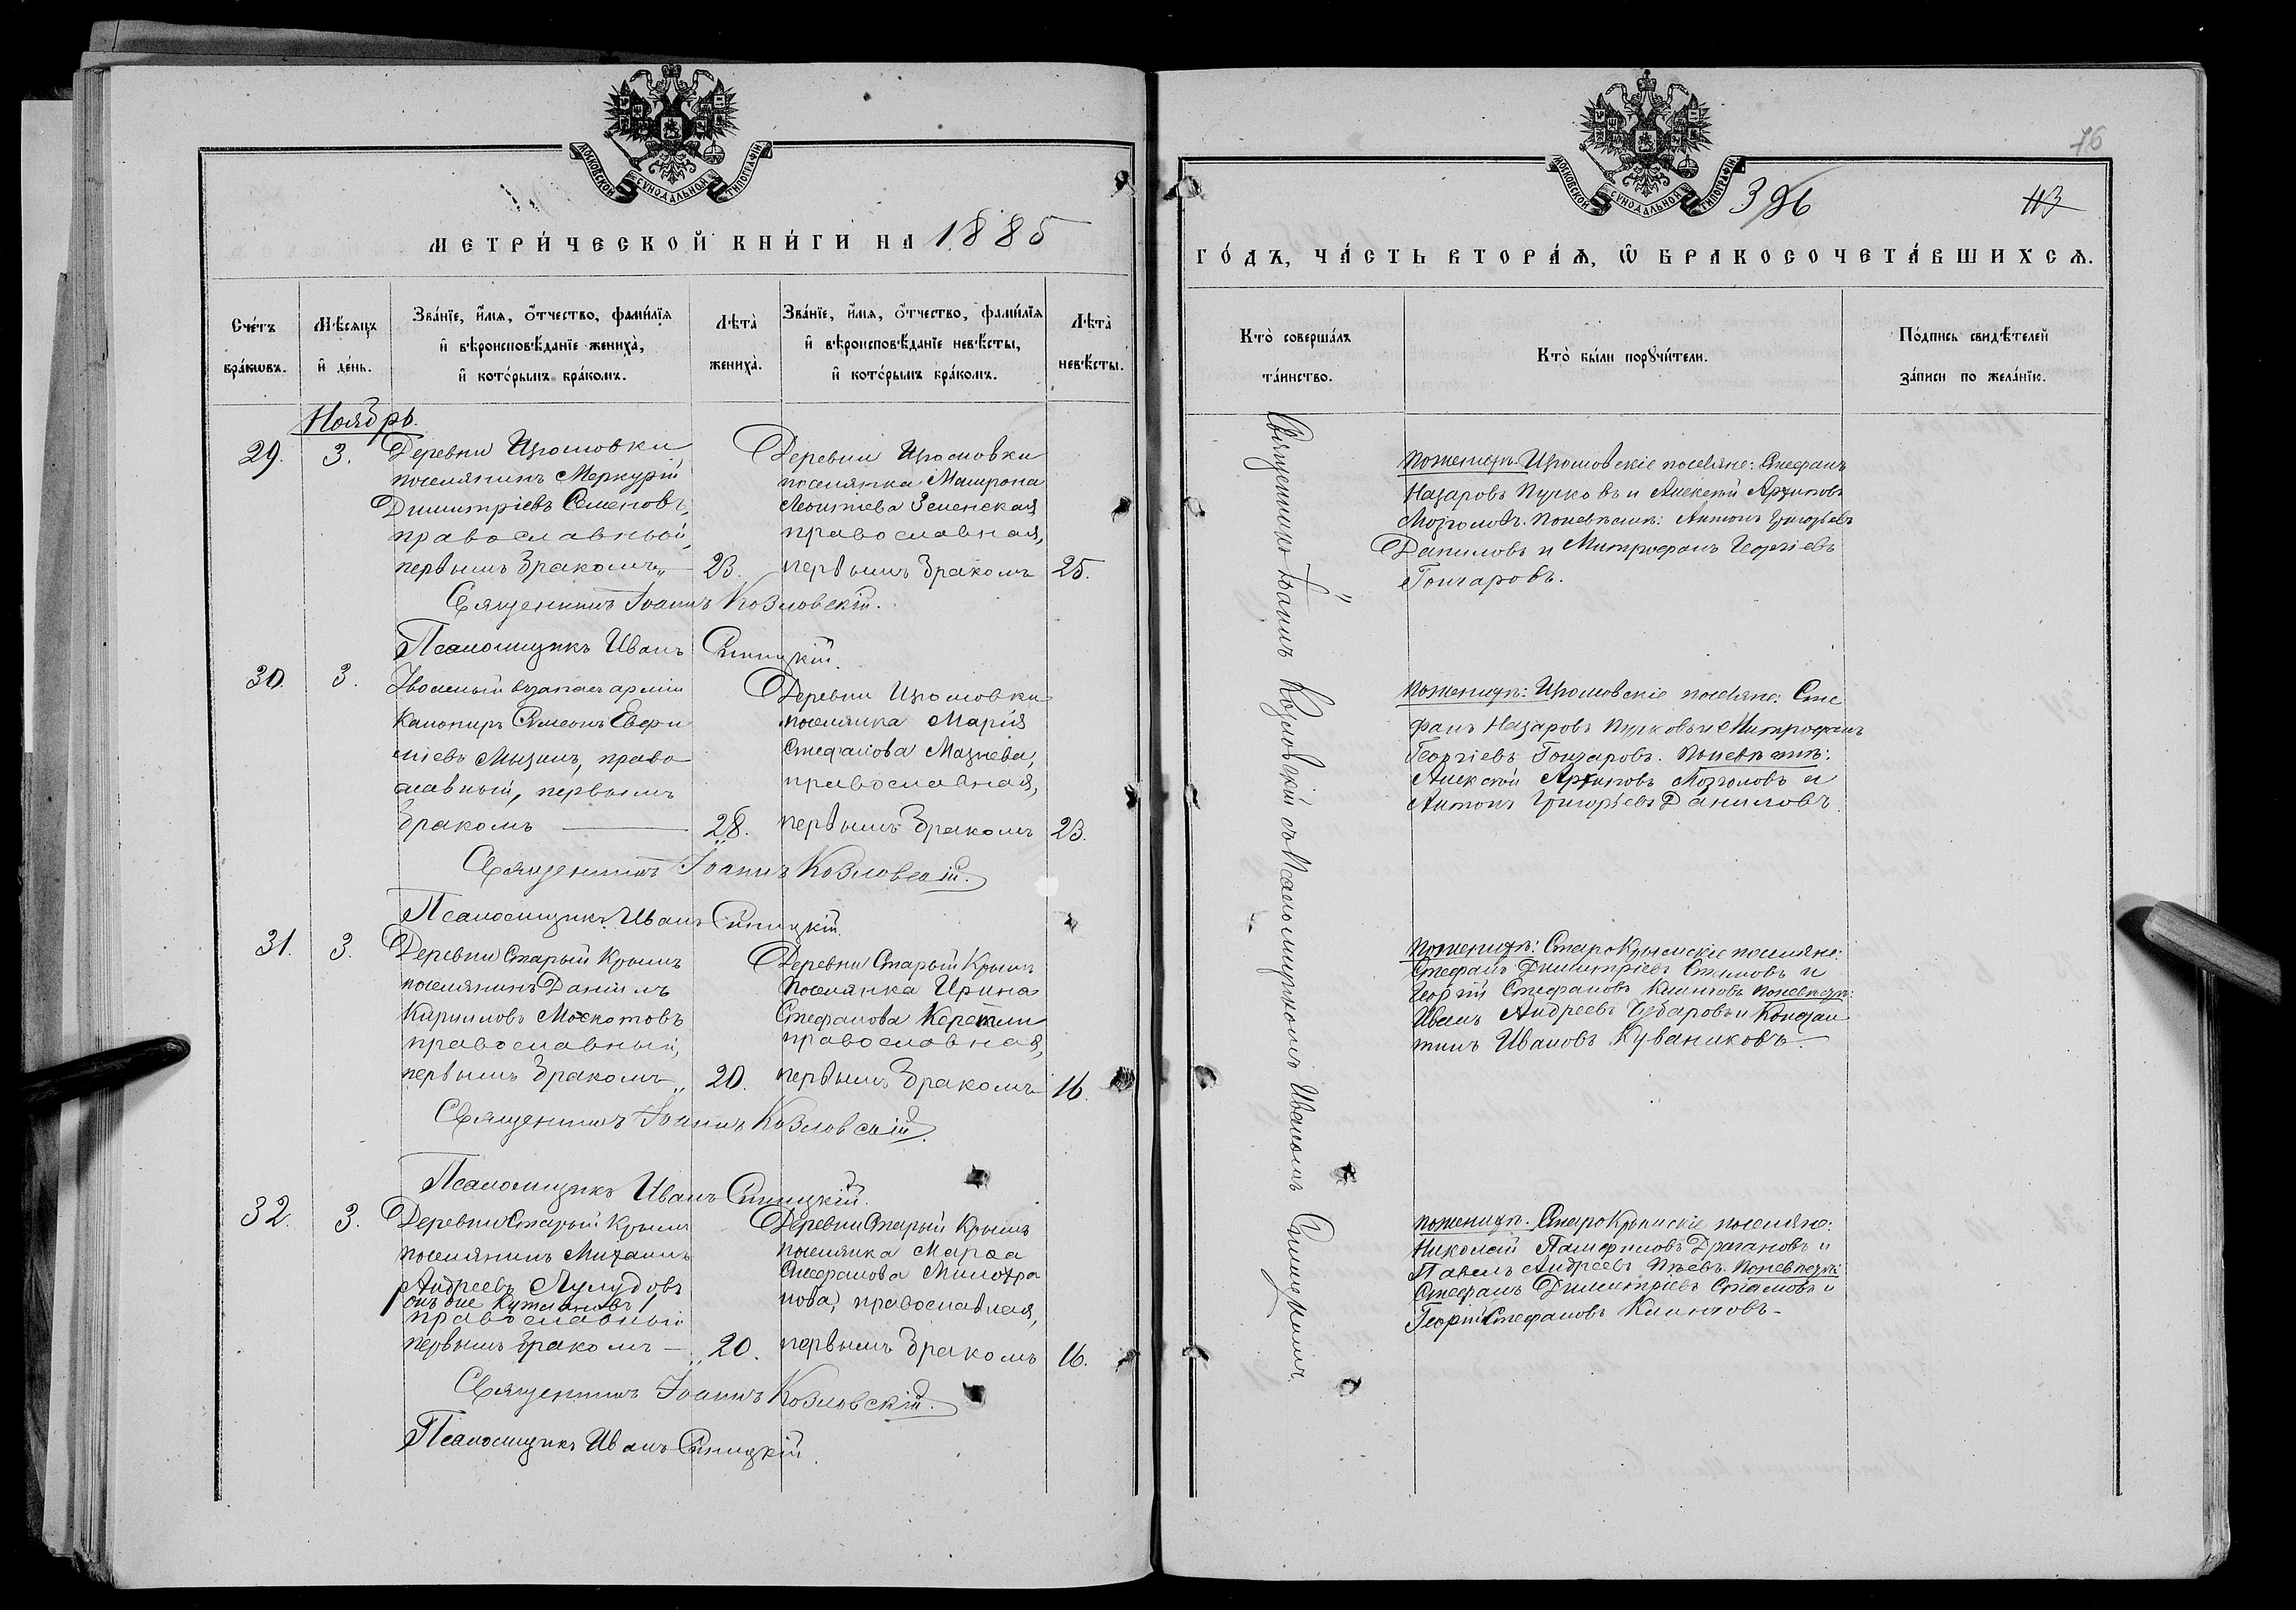 МОСКОВСКОЙ СѴНОДАЛЬНОЙ ТИПОГРАФІИ
МЕТРИ́ЧЕСКОЙ КНИ́ГИ НА 1885
Сче́тъ бра́кѡвъ.
Мѣ́сяцъ и де́нь.
Зва́нїе, и́мя, ѻ́тчество, фами́лїя
и вѣроисповѣ́данїе жениха̀,
и кото́рымъ бра́комъ.
Лѣта̀ жениха̀.
Зва́нїе, и́мя, ѻ́тчество, фами́лїя
и вѣроисповѣ́данїе невѣ́сты,
и кото́рымъ бра́комъ.
Лѣта̀ невѣ́сты.
Ноябрь.
29. 3.
Деревни
поселянинъ Меркурій
Димитріевъ Семеновъ,
православный,
первымъ бракомъ 23.
Деревни
поселянка Матрона
Леонтіева Зеленская
православная,
первымъ бракомъ 25.
Священникъ Іоаннъ Козловскій.
Псаломщикъ Иванъ Синицкій.
30. 3.
Уволенный въ запасъ арміи
Канониръ Симеонъ Евфи
міевъ Мызинъ, право
славный, первымъ
бракомъ 28.
Деревни
поселянка Марія
Стефанова Мазнева,
православная,
первымъ бракомъ 23.
Священникъ Іоаннъ Козловскій.
Псаломщикъ Иванъ Синицкій.
31. 3.
Деревни Старый Крымъ
поселянинъ Даніилъ
Кирилловъ Москотовъ
православный,
первымъ бракомъ 20.
Деревни Старый Крымъ
Поселянка Ирина
Стефанова
православная,
первымъ бракомъ 16.
Священникъ Іоаннъ Козловскій.
Псаломщикъ Иванъ Синицкій.
32. 3.
Деревни Старый Крымъ
поселянинъ Михаилъ
Андреевъ
/онъ же
православный
первымъ бракомъ 20.
Деревни Старый Крымъ
поселянка Марѳа
Стефанова
нова, православная,
первымъ бракомъ 16.
Священникъ Іоаннъ Козловскій.
Псаломщикъ Иванъ Синицкій.
76
МОСКОВСКОЙ СѴНОДАЛЬНОЙ ТИПОГРАФІИ
396
113
ГО́ДЪ, ЧА́СТЬ ВТОРА́Я, Ѡ БРАКОСОЧЕТА́ВШИХСЯ.
Кто̀ соверша́лъ та́инство.
Кто̀ бы́ли порꙋчи́тели.
По́дпись свидѣ́телей за́писи по жела́нїю.
Священникъ Іоаннъ Козловскій съ Псаломщикомъ Иваномъ Синицкимъ.
По женихѣ: поселяне: Стефанъ
Назаровъ Пурковъ и Алексѣй Архиповъ
Мозголовъ. По невѣстѣ: Антонъ Григорьевъ
Даниловъ и Митрофанъ Георгіевъ
Гончаровъ.
По женихѣ: поселяне: Сте
фанъ Назаровъ Пурковъ и Митрофанъ
Георгіевъ Гончаровъ. По невѣстѣ:
Алексѣй Архиповъ Мозголовъ и
Антонъ Григорьевъ Даниловъ.
По женихѣ: Старокрымскіе поселяне:
Стефанъ Димитріевъ и
Георгій Стефановъ По невѣстѣ:
Иванъ Андреевъ Чубаровъ и Констан
тинъ Ивановъ
По женихѣ: Старокрымскіе поселяне:
Николай Памфиловъ Драгановъ и
Павелъ Андреевъ По невѣстѣ:
Стефанъ Димитріевъ и
Георгій Стефановъ